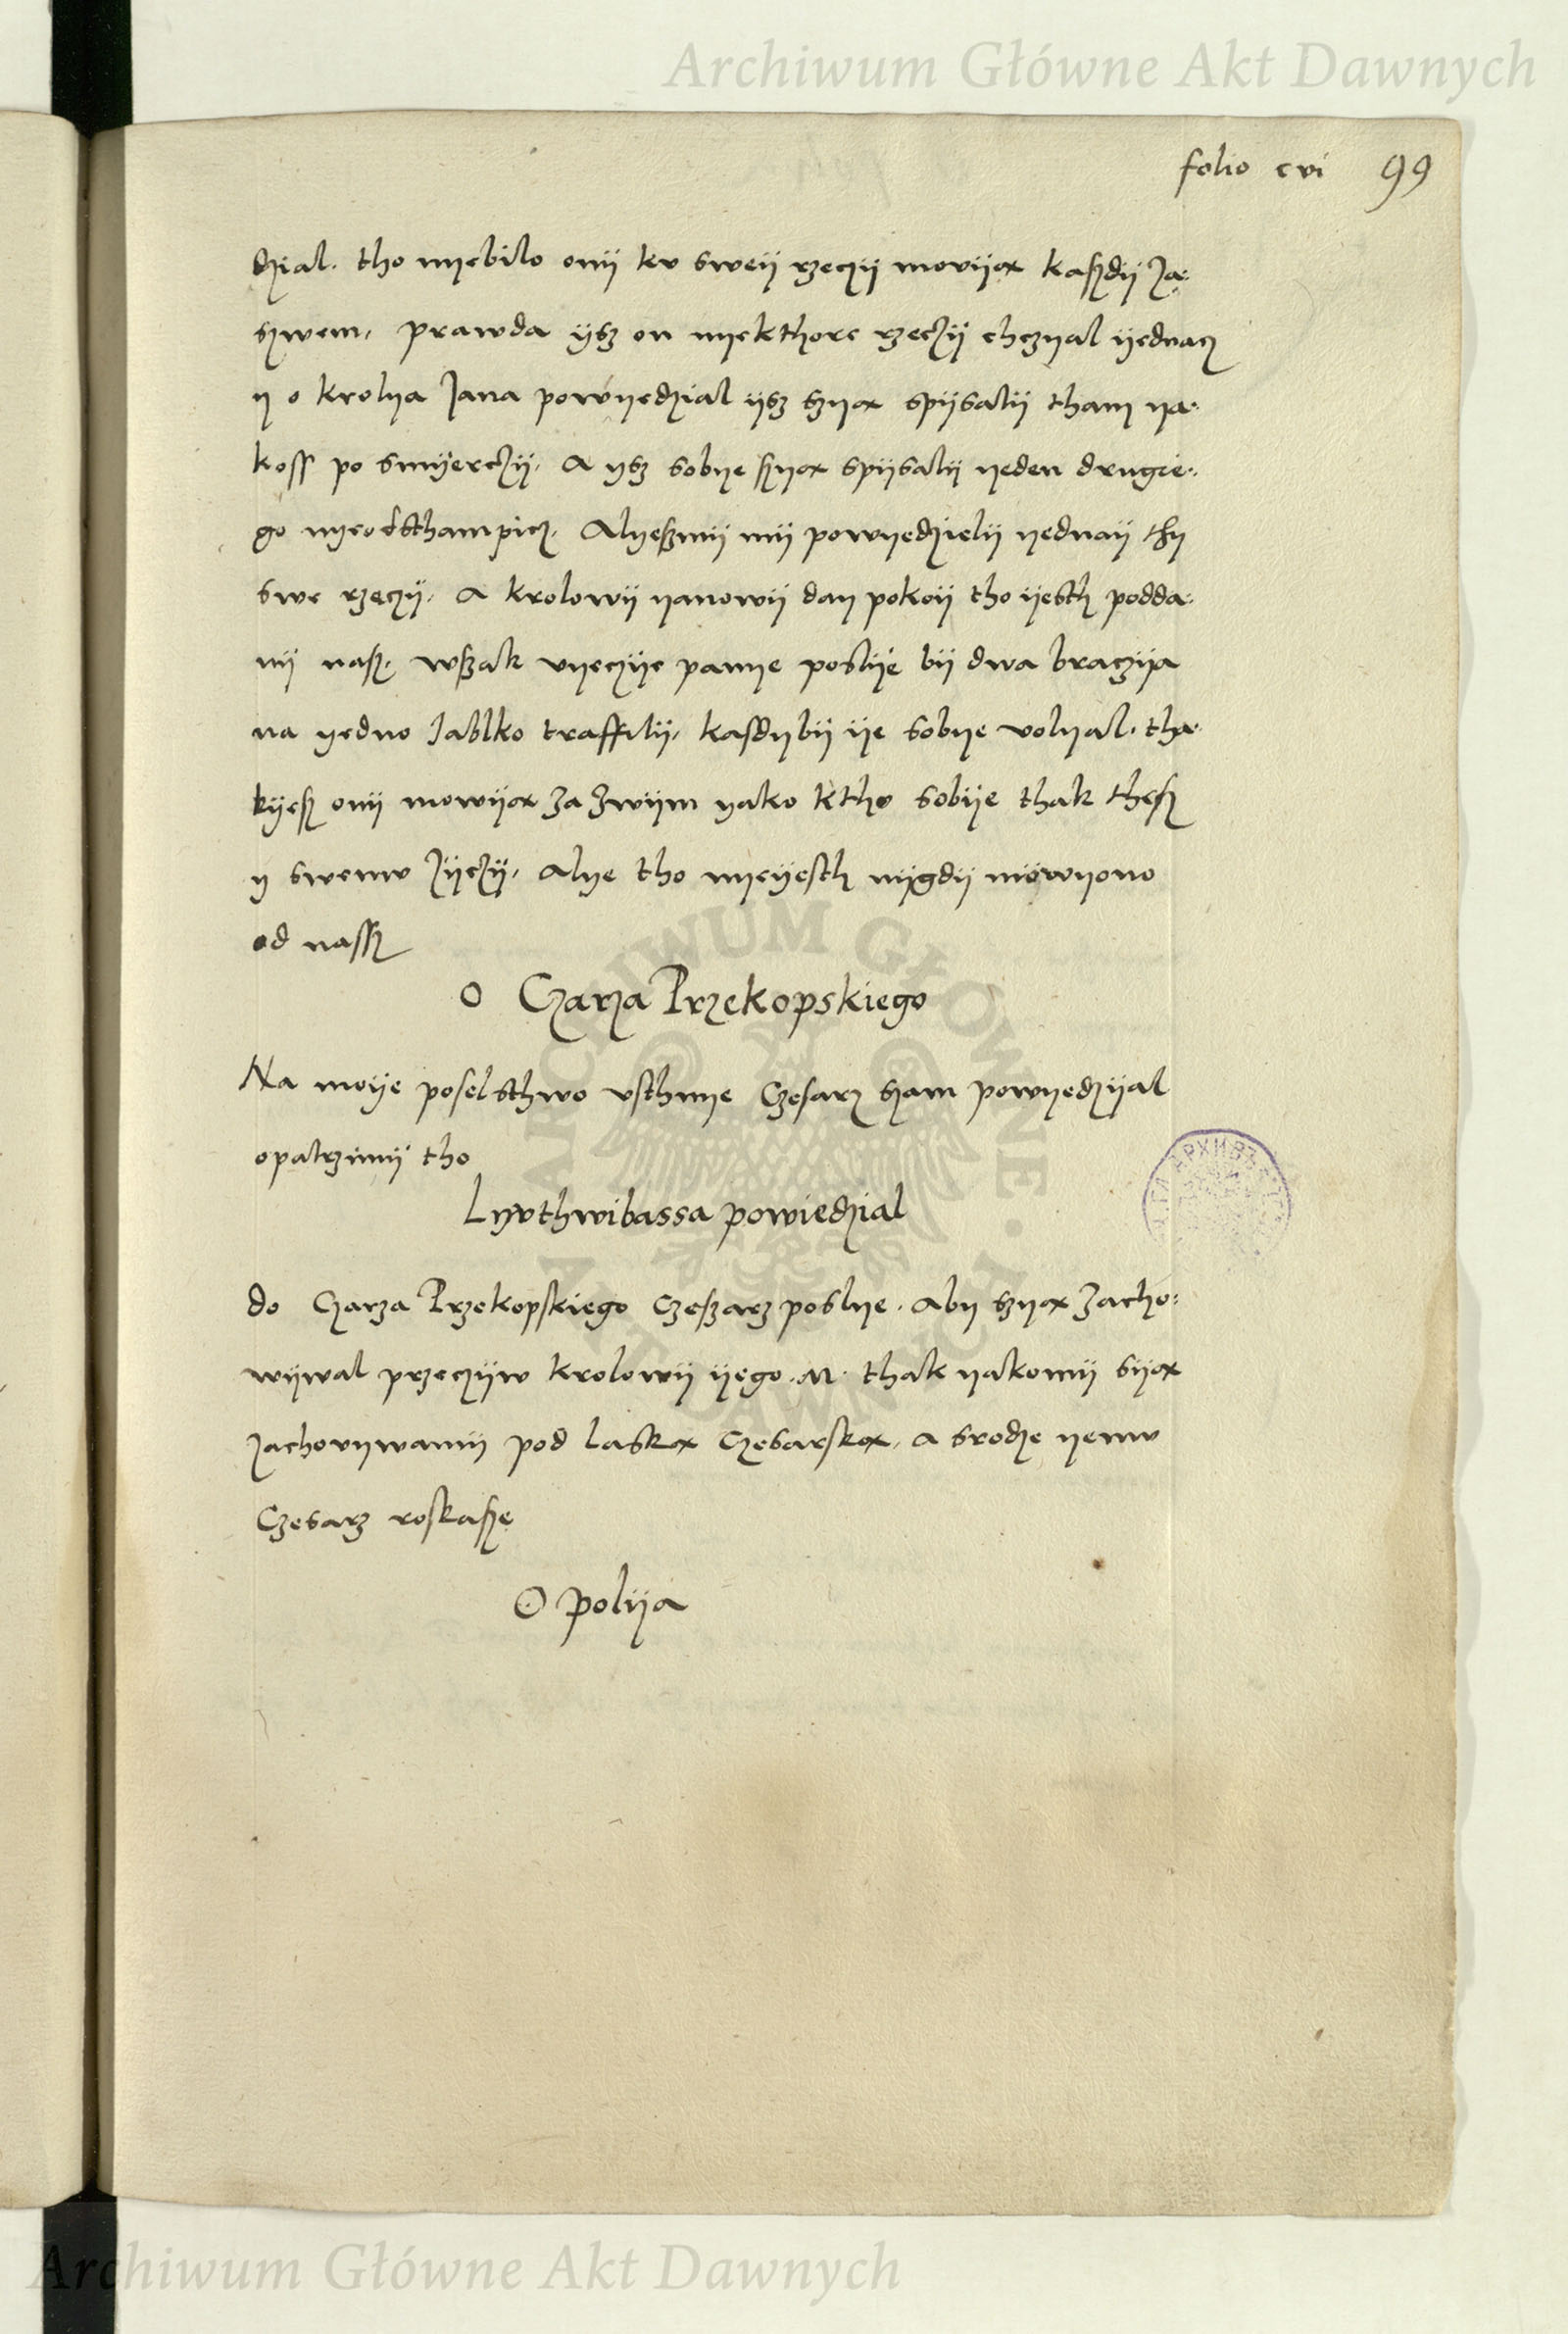 Archiwum Główne Akt Dawnych
folio cvi 99
dzial. tho nyebilo onij ku sweij rzeczij moviją kaszdij za-
szwem, prawda ysz on nyekthore rzeczij chczyal ijednacz
y o krolya Jana powyedzial ijsz szyą spijsalij tham ya-
koss po smijerczij, A ysz sobye szyą spijsalij yeden drugie-
go nyeodsthampicz. Alyeszmij mij powyedzielij yednaij thy
swe rzeczij, A krolowij yanowij day pokoij tho ijesth podda-
nij nasz, wszak vyeczije panye poslije bij dwa braczija
na yedno Jablko traffilij, kasdybij ije sobye volyal. tha-
kijesz onij mowiją za zwijm yako ktho sobije thak thesz
y swemu zijczij, Alye tho nyeijesth nijgdij mowyono
od nassz
O Czarza Przekopskiego
Na moije poselsthwo vsthnye Czesarz szam powyedzijal
opatrzimij tho
Lyvthwibassa powiedzial
do Czarza Przekopskiego Czeszarz poslye. Aby szyą zacho-
wijwal przeczijw krolowij ijego .M. thak yakomij siją
zachovywamij pod laską Czesarską, A srodze yemu
Czesarz roskasze
O polija
Archiwum Główne Akt Dawnych